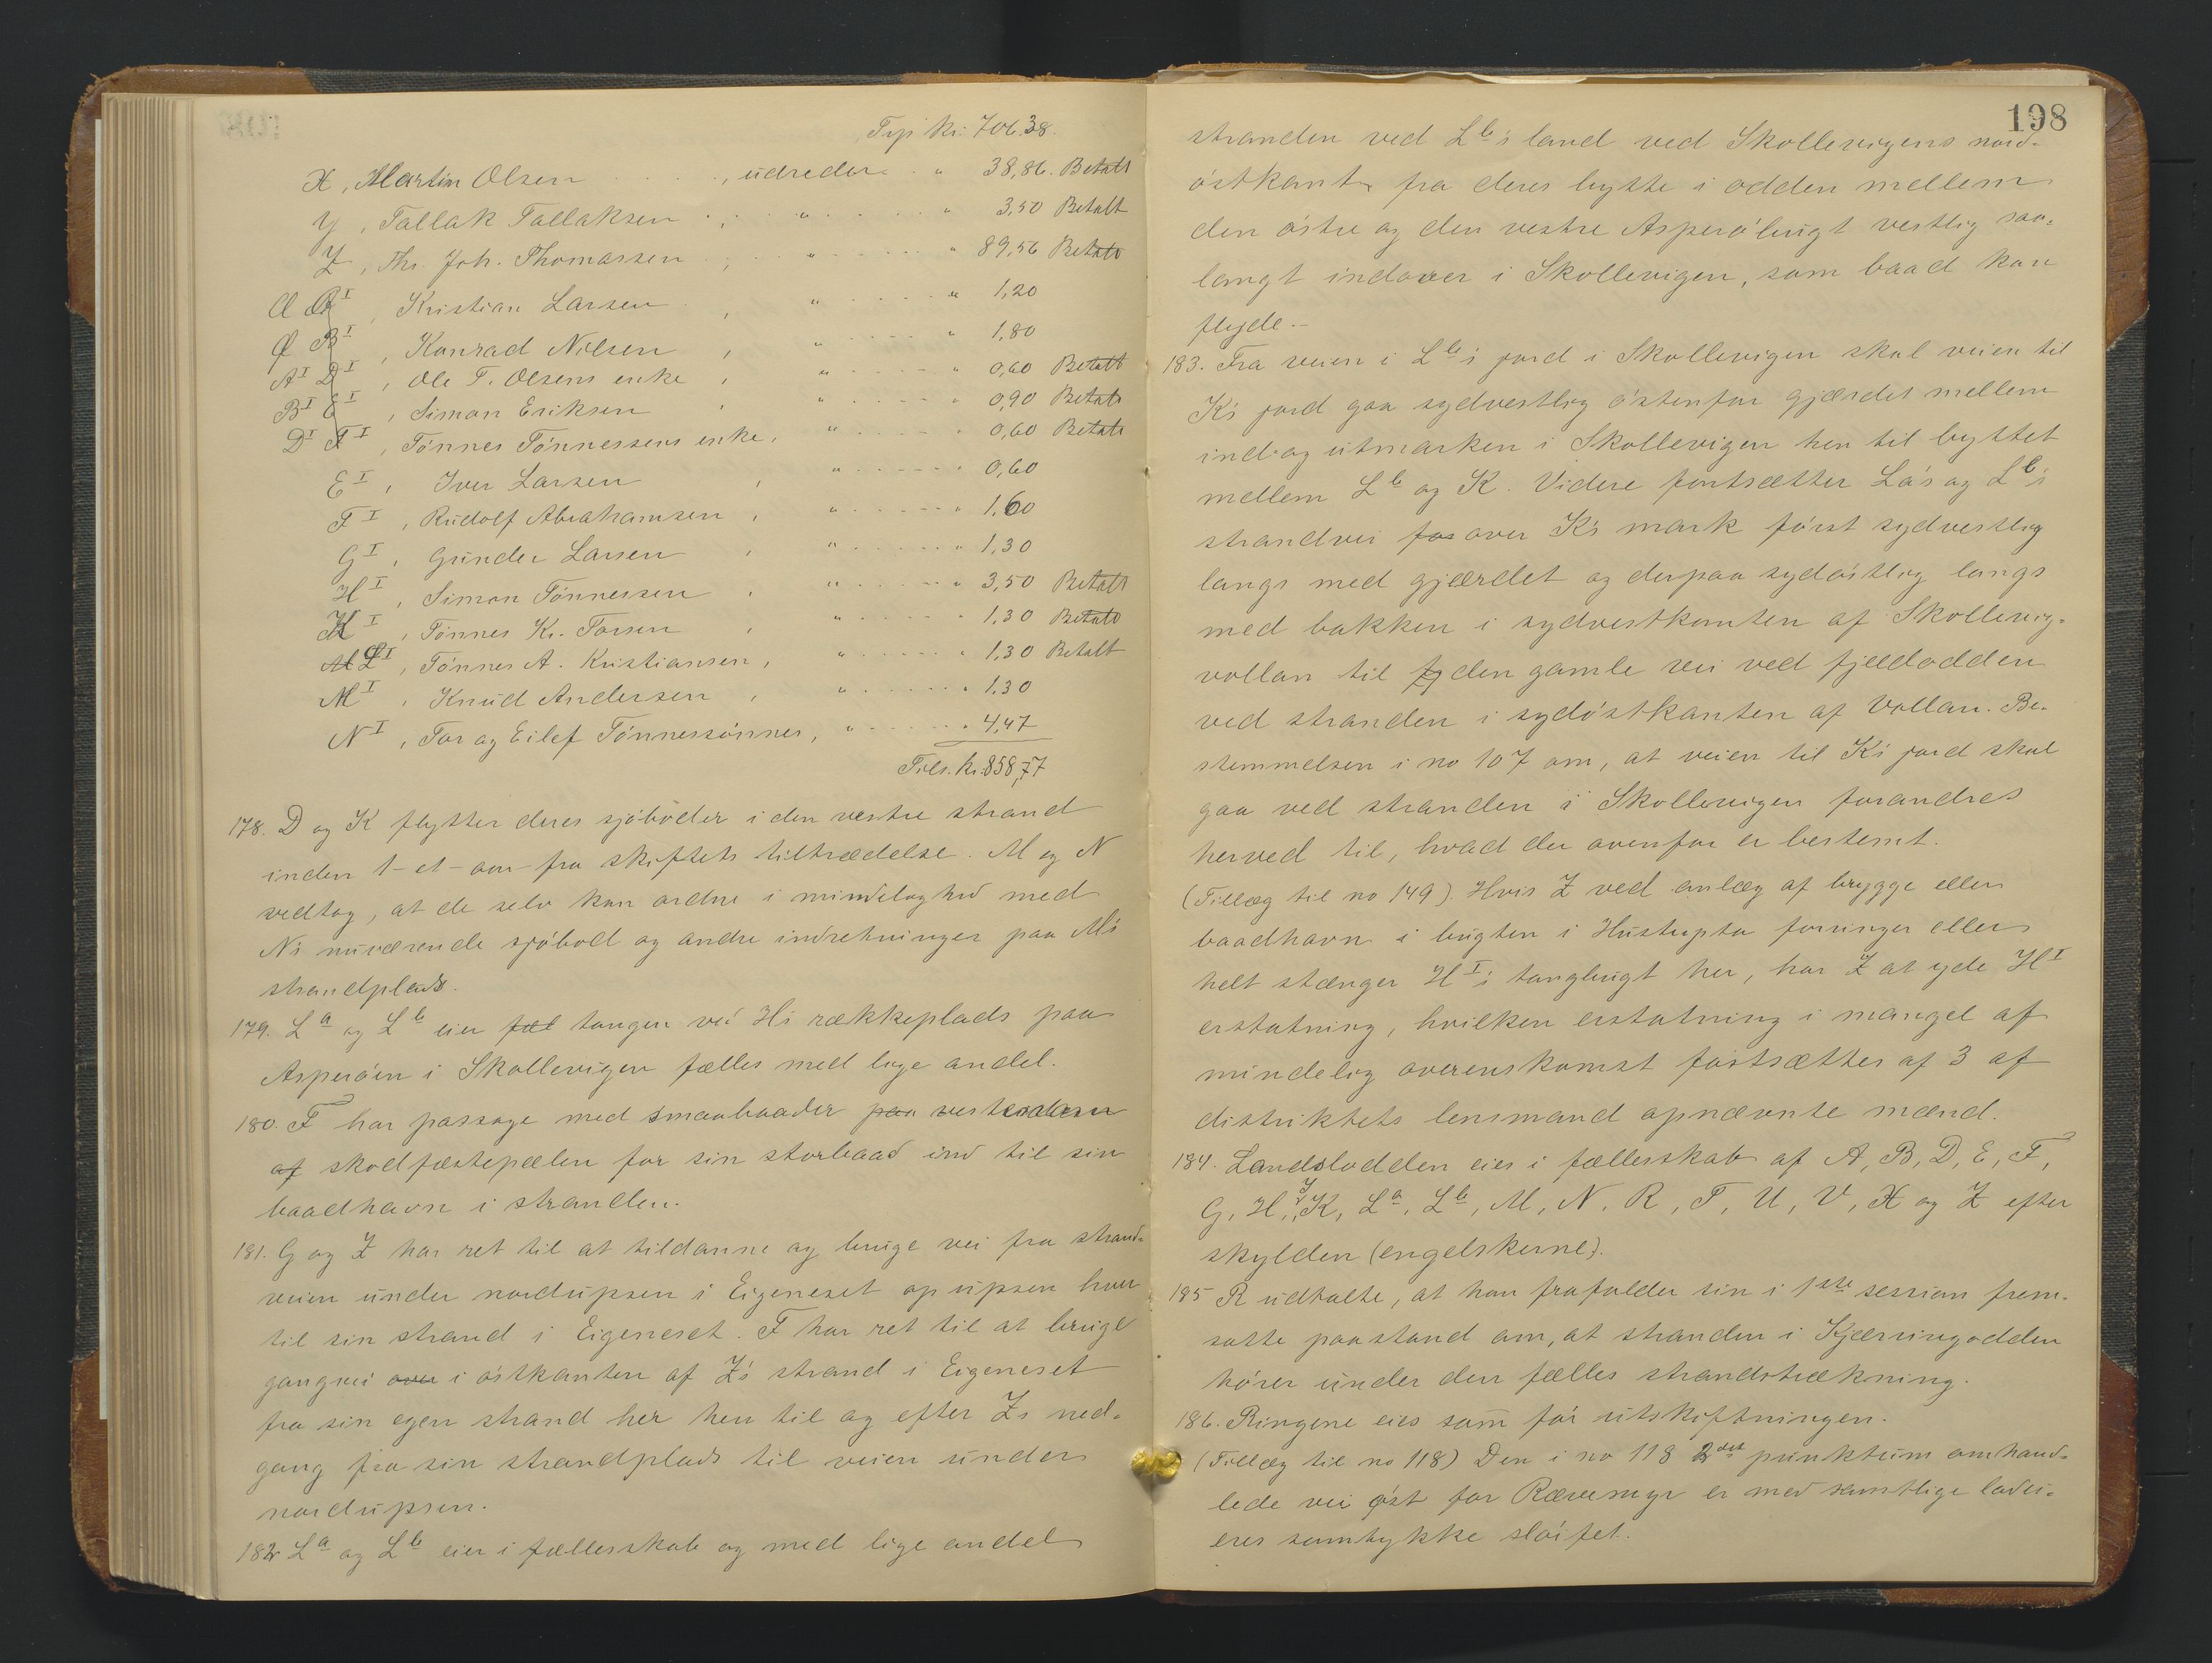 Trp. kr. 706.38.
X, Martin Olsen . . . . , udreder . . " 38,86. Betalt
Y, Tallak Tallaksen . , . . " . . . . . " 3,50 Betalt
Z, Ths. Joh. Thomassen . , . . " . . . . . " 89,56 Betalt
Kristian Larsen , " . . . . " 1,20
Konrad Nilsen , " . . . . " 1,80
A^I D^I, Ole T. Olsens enke , " . . . . " 0,60 Betalt
B^I E^I, Simon Eriksen , " . . . . " 0,90 Betalt
D^I F^I, Tönnes Tönnessens enke, " . . . . " 0,60 Betalt
E^I, Iver Larsen , " . . . . " 0,60
F^I, Rudolf Abrahamsen , " . . . . " 1,60
G^I, Gunder Larsen , " . . . . " 1,30
H^I, Simon Tönnessen , " . . . . " 3,50 Betalt
K^I, Tönnes Kr. Torsen , " . . . . " 1,30 Betalt
L^I, Tönnes A. Kristiansen, " . . . . " 1,30 Betalt
M^I, Knud Andersen , " . . . . " 1,30
N^I, Tor og Eilef Tönnessönner, " . . . . " 4,47
Tils. kr. 858,77
178. D og K flytter deres sjöboder i den vestre strand
inden 1 - et - aar fra skiftets tiltrædelse. M og N
vedtog, at de selv kan ordne i mindelighed med
N's nuværende sjöbod og andre indretninger paa M's
strandplads.
179. L^a og L^b eier fæl tangen ved H's rækkeplads paa
Asperöen i Skollevigen fælles med lige andel.
180. F har passage med smaabaader paa vestendom
af skodfæstepælen for sin storbaad ind til sin
baadhavn i stranden.
181. G og Z har ret til at tildanne og bruge vei fra strand-
veien under nordupsen i Eigeneset op upsen hver
til sin strand i Eigeneset. F har ret til at bruge
gangvei over i östkanten af Z's strand i Eigeneset
fra sin egen strand her hen til og efter Z's ned-
gang fra sin strandplads til veien under
nordupsen.
182 L^a og L^b eier i fællesskab og med lige andel
198
stranden ved L^b's land ved Skollevigens nord-
östkant fra deres bytte i odden mellem
den östre og den vestre Asperöbugt vestlig saa-
langt indover i Skollevigen, som baad kan
flyde. -
183. Fra veien i L^b's jord i Skollevigen skal veien til
K's jord gaa sydvestlig östenfor gjærdet mellem
ind- og utmarken i Skollevigen hen til byttet
mellem L^b og K. Videre fortsætter La's og L^b's
strandvei for over K's mark först sydvestlig
langs med gjærdet og derpaa sydöstlig langs
med bakken i sydvestkanten af Skollevig-
vollan til den gamle vei ved fjeldodden
ved stranden i sydöstkanten af Vollan. Be-
stemmelsen i no 107 om, at veien til K's jord skal
gaa ved stranden i Skollevigen forandres
herved til, hvad der ovenfor er bestemt.
(Tillæg til no 149). Hvis Z ved anlæg af brygge eller
baadhavn i bugten i Hustupta forringer eller
helt stænger H^I's tangbugt her, har Z at yde H^I
erstatning, hvilken erstatning i mangel af
mindelig overenskomst fastsættes af 3 af
distriktets lensmand opnævnte mænd.
184. Landslodden eies i fællesskab af A, B, D, E, F,
G, H, J, K, L^a, L^b, M, N, R, T, U, V, X og Z efter
skylden (engelskerne).
185 R udtalte, at han frafalder sin i 1ste session frem-
satte paastand om, at stranden i Kjærringodden
hörer under den fælles strandstrækning.
186. Ringene eies som för utskiftningen.
(Tillæg til no 118) Den i no 118 2det punktum omhand-
lede vei öst for Rævemyr er med samtlige lodei-
eres samtykke slöifet.